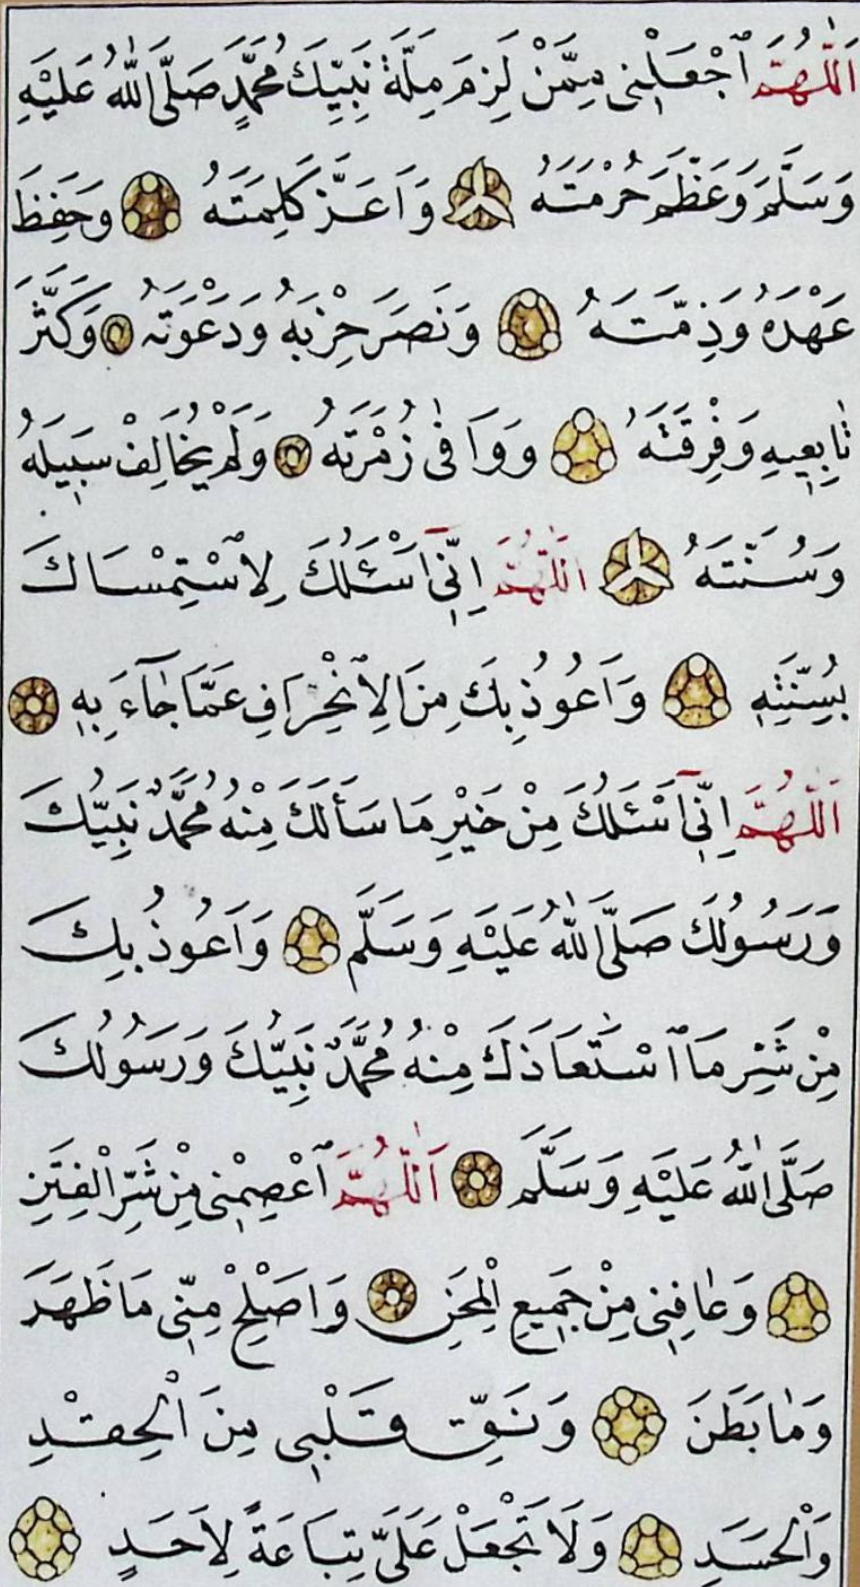 اَللّٰهُمَّ ٱجْعَلْنِى مِمَّنْ لَزِمَ مِلَّةَ نَبِيِّكَ مُحَمَّدٍ صَلَّى اللّٰهُ عَلَيْهِ
وَسَلَّمَ وَعَظَّمَ حُرْمَتَهُ وَاَعَزَّ كَلِمَتَهُ وَحَفِظَ
عَهْدَهُ وَذِمَّتَهُ وَنَصَرَ حِزْبَهُ وَدَعْوَتَهُ وَكَثَّرَ
تَابِعِيهِ وَفِرْقَتَهُ وَوَافٰى زُمْرَتَهُ وَلَمْ يُخَالِفْ سَبِيلَهُ
وَسُنَّتَهُ اَللّٰهُمَّ اِنِّىٓ اَسْئَلُكَ لِاسْتِمْسَاكَ
بِسُنَّتِهِ وَاَعُوذُ بِكَ مِنَ الْاِنْحِرَافِ عَمَّا جَآءَ بِهِ
اَللّٰهُمَّ اِنِّىٓ اَسْئَلُكَ مِنْ خَيْرِ مَا سَأَلَكَ مِنْهُ مُحَمَّدٌ نَبِيُّكَ
وَرَسُولُكَ صَلَّى اللّٰهُ عَلَيْهِ وَسَلَّمَ وَاَعُوذُ بِكَ
مِنْ شَرِّ مَا ٱسْتَعَاذَكَ مِنْهُ مُحَمَّدٌ نَبِيُّكَ وَرَسُولُكَ
صَلَّى اللّٰهُ عَلَيْهِ وَسَلَّمَ اَللّٰهُمَّ ٱعْصِمْنِى مِنْ شَرِّ الْفِتَنِ
وَعَافِنِى مِنْ جَمِيعِ الْمِحَنِ وَاَصْلِحْ مِنِّى مَا ظَهَرَ
وَمَا بَطَنَ وَنَقِّ قَلْبِى مِنَ الْحِقْدِ
وَالْحَسَدِ وَلَا تَجْعَلْ عَلَىَّ تِبَاعَةً لِاَحَدٍ